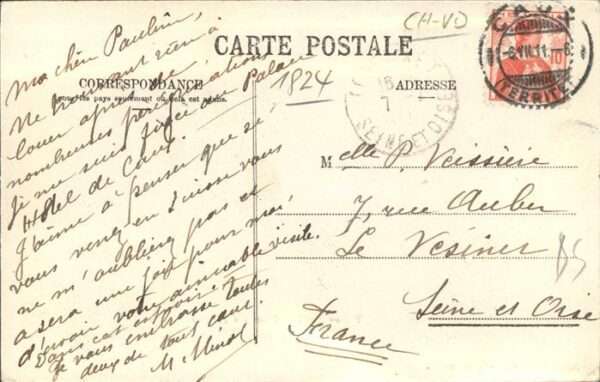 CH-VD
CARTE POSTALE
CORRESPONDANCE
Tous les pays seulement ou cela est admis.
1824
ADRESSE
CAUX
-8.VII.11.-8
(TERRITET)
10
SEINE ET OISE
Ma chère Pauline,
Ne trouvant rien à
louer après de
nombreuses pérégrinations
je me suis fixée au Palace
Hôtel de Caux.
J'aime à penser que si
vous venez en Suisse vous
ne m'oubliez pas et
ce sera une joie pour moi
d'avoir votre aimable visite.
Dans cet espoir
je vous embrasse toutes
deux de tout cœur.
M. Minol
Melle P. Veissière
7, rue Auber
Le Vésinet
Seine et Oise
France